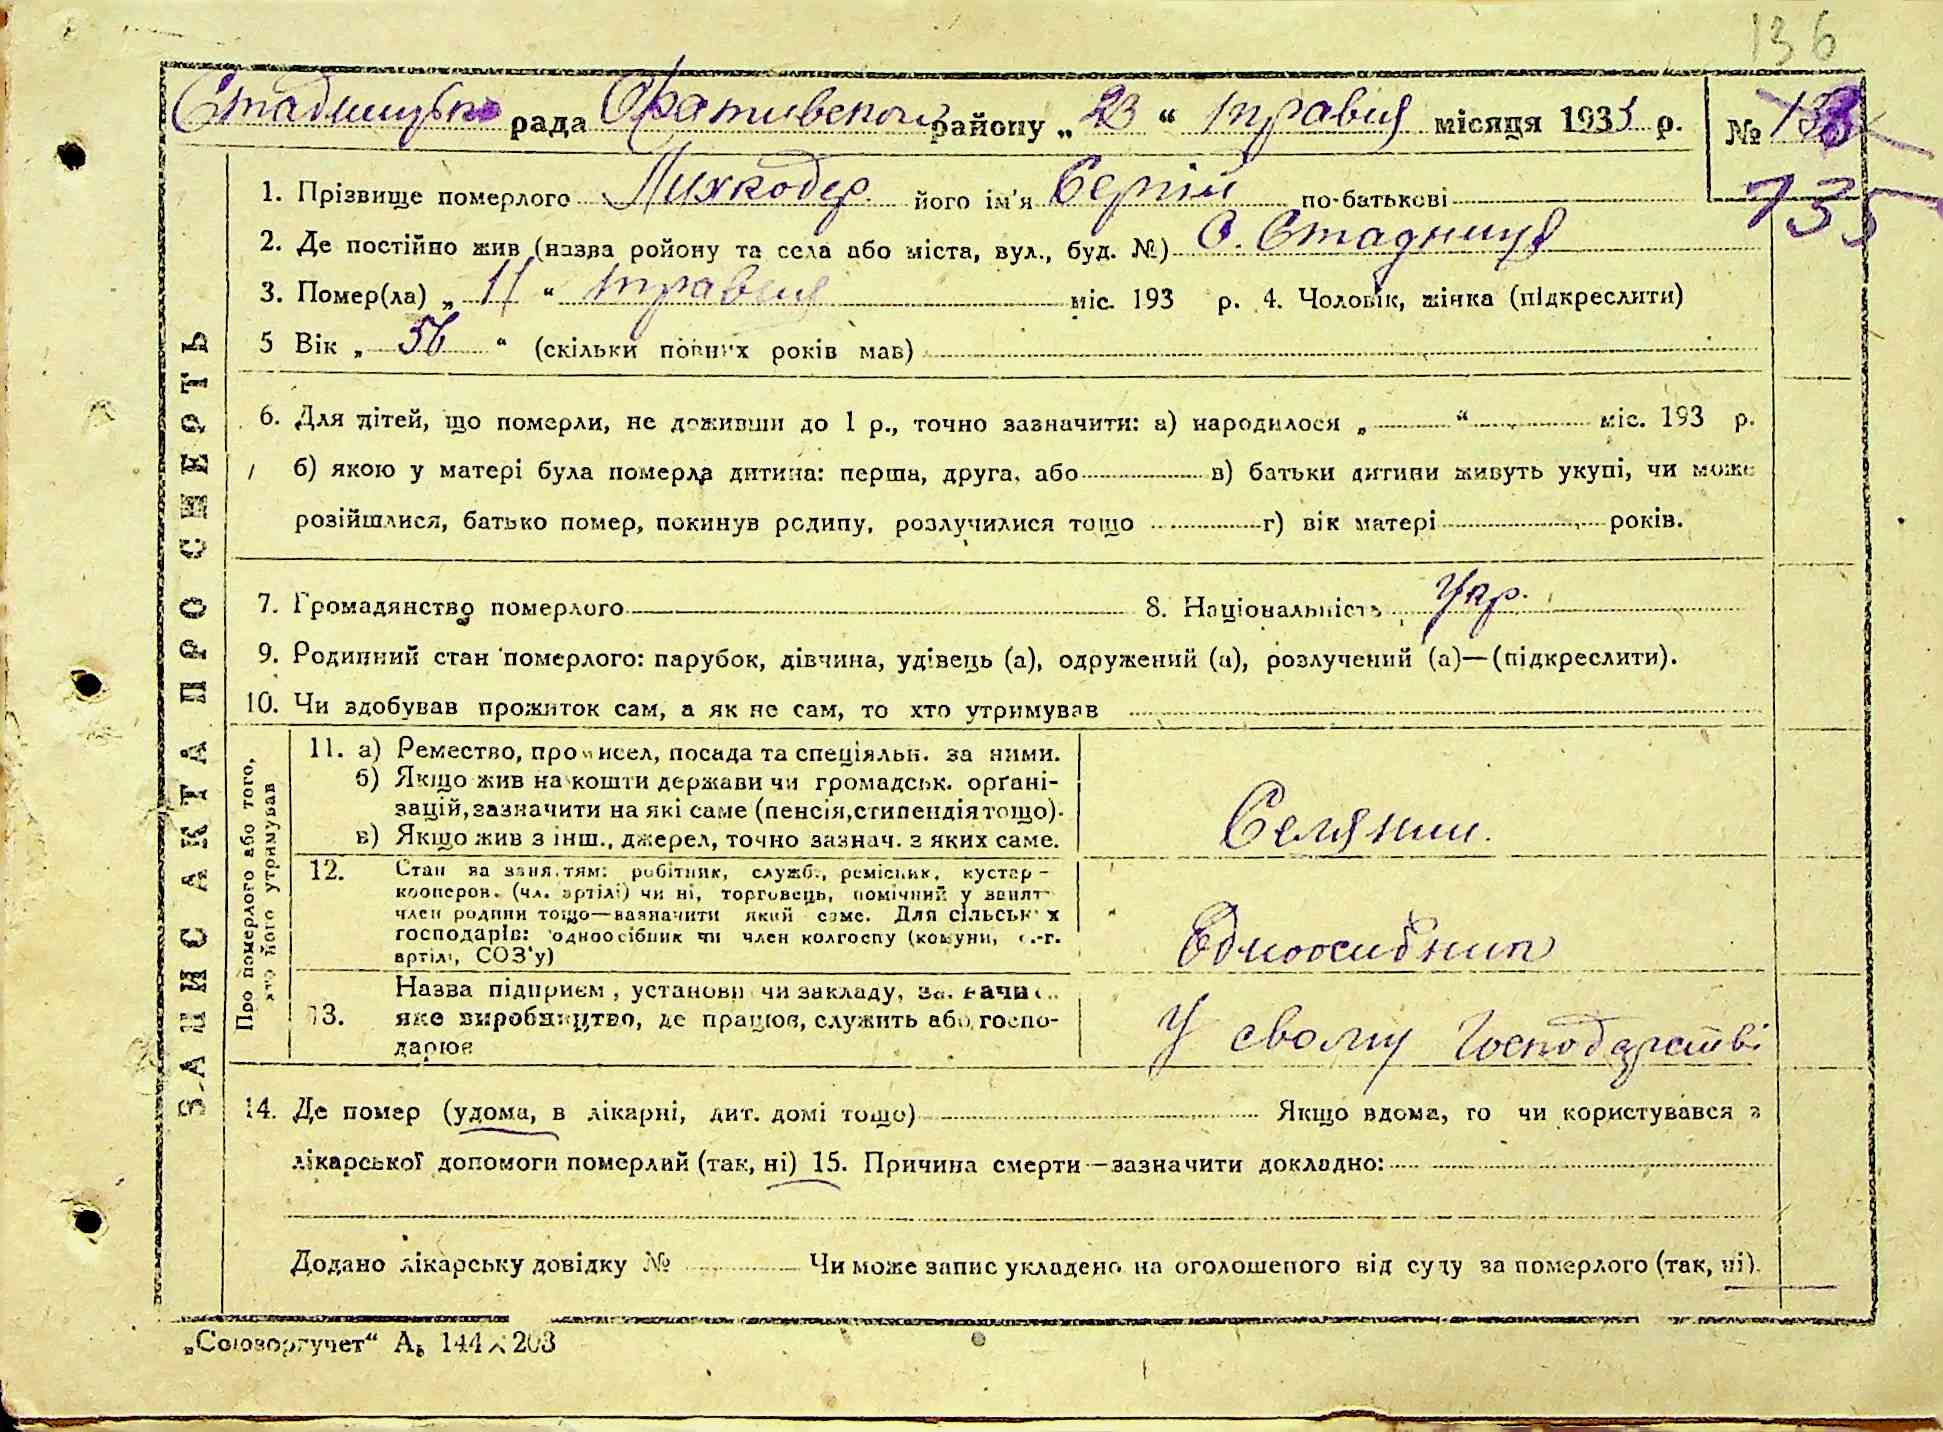 136
Стадницька рада Фастівського району „23“ травня місяця 1933 р. № 138
135
ЗАПИС АКТА ПРО СМЕРТЬ
1. Прізвище померлого Лихкодер його ім'я Сергій по-батькові
2. Де постійно жив (назва ройону та села або міста, вул., буд. №) С. Стадниця
3. Помер(ла) „11“ травня міс. 193 р. 4. Чоловік, жінка (підкреслити)
5 Вік „56“ (скільки повних років мав)
6. Для дітей, що померли, не доживши до 1 р., точно зазначити: а) народилося „ “ міс. 193 р.
б) якою у матері була померла дитина: перша, друга, або в) батьки дитини живуть укупі, чи може
розійшлися, батько помер, покинув родину, розлучилися тощо г) вік матері років.
7. Громадянство померлого 8. Національність Укр.
9. Родинний стан померлого: парубок, дівчина, удівець (а), одружений (а), розлучений (а)—(підкреслити).
10. Чи здобував прожиток сам, а як не сам, то хто утримував
Про померлого або того, хто його утримував
11. а) Ремество, промисел, посада та спеціяльн. за ними.
б) Якщо жив на кошти держави чи громадськ. орґані-
зацій, зазначити на які саме (пенсія, стипендія тощо).
в) Якщо жив з інш., джерел, точно зазнач. з яких саме.
Селянин.
12. Стан за заняттям: робітник, службу, ремісник, кустар-
кооперов. (чл. артілі) чи ні, торговець, помічний у занят
член родини тощо—зазначити який саме. Для сільських
господарів: одноосібник чи член колгоспу (комуни, с.-г.
артілі, СОЗ'у)
Едноосибник
13. Назва підприєм, установи чи закладу, зазначи
яке виробництво, де працюв, служить або госпо-
дарюв
У свому господарстві
14. Де помер (удома, в лікарні, дит. домі тощо) Якщо вдома, то чи користувався з
лікарської допомоги померлий (так, ні) 15. Причина смерти—зазначити докладно:
Додано лікарську довідку № Чи може запис укладено на оголошеного від суду за померлого (так, ні).
„Союзоргучет“ А₅ 144×203